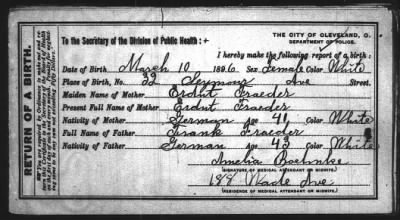 THE CITY OF CLEVELAND, O.
DEPARTMENT OF POLICE.
To the Secretary of the Division of Public Health:
I hereby make the following report of a birth:
Date of Birth March 10 1896 Sex Female Color White
Place of Birth, No. 32 Seymour Ave Street.
Maiden Name of Mother Erdnt Fraeder
Present Full Name of Mother Erdnt Fraeder
Nativity of Mother German Age 41 Color White
Full Name of Father Frank Fraeder
Nativity of Father German Age 43 Color White
Amelia Boehnke
(SIGNATURE OF MEDICAL ATTENDANT OR MIDWIFE.)
188 Wade Ave
(RESIDENCE OF MEDICAL ATTENDANT OR MIDWIFE.)
RETURN OF A BIRTH.